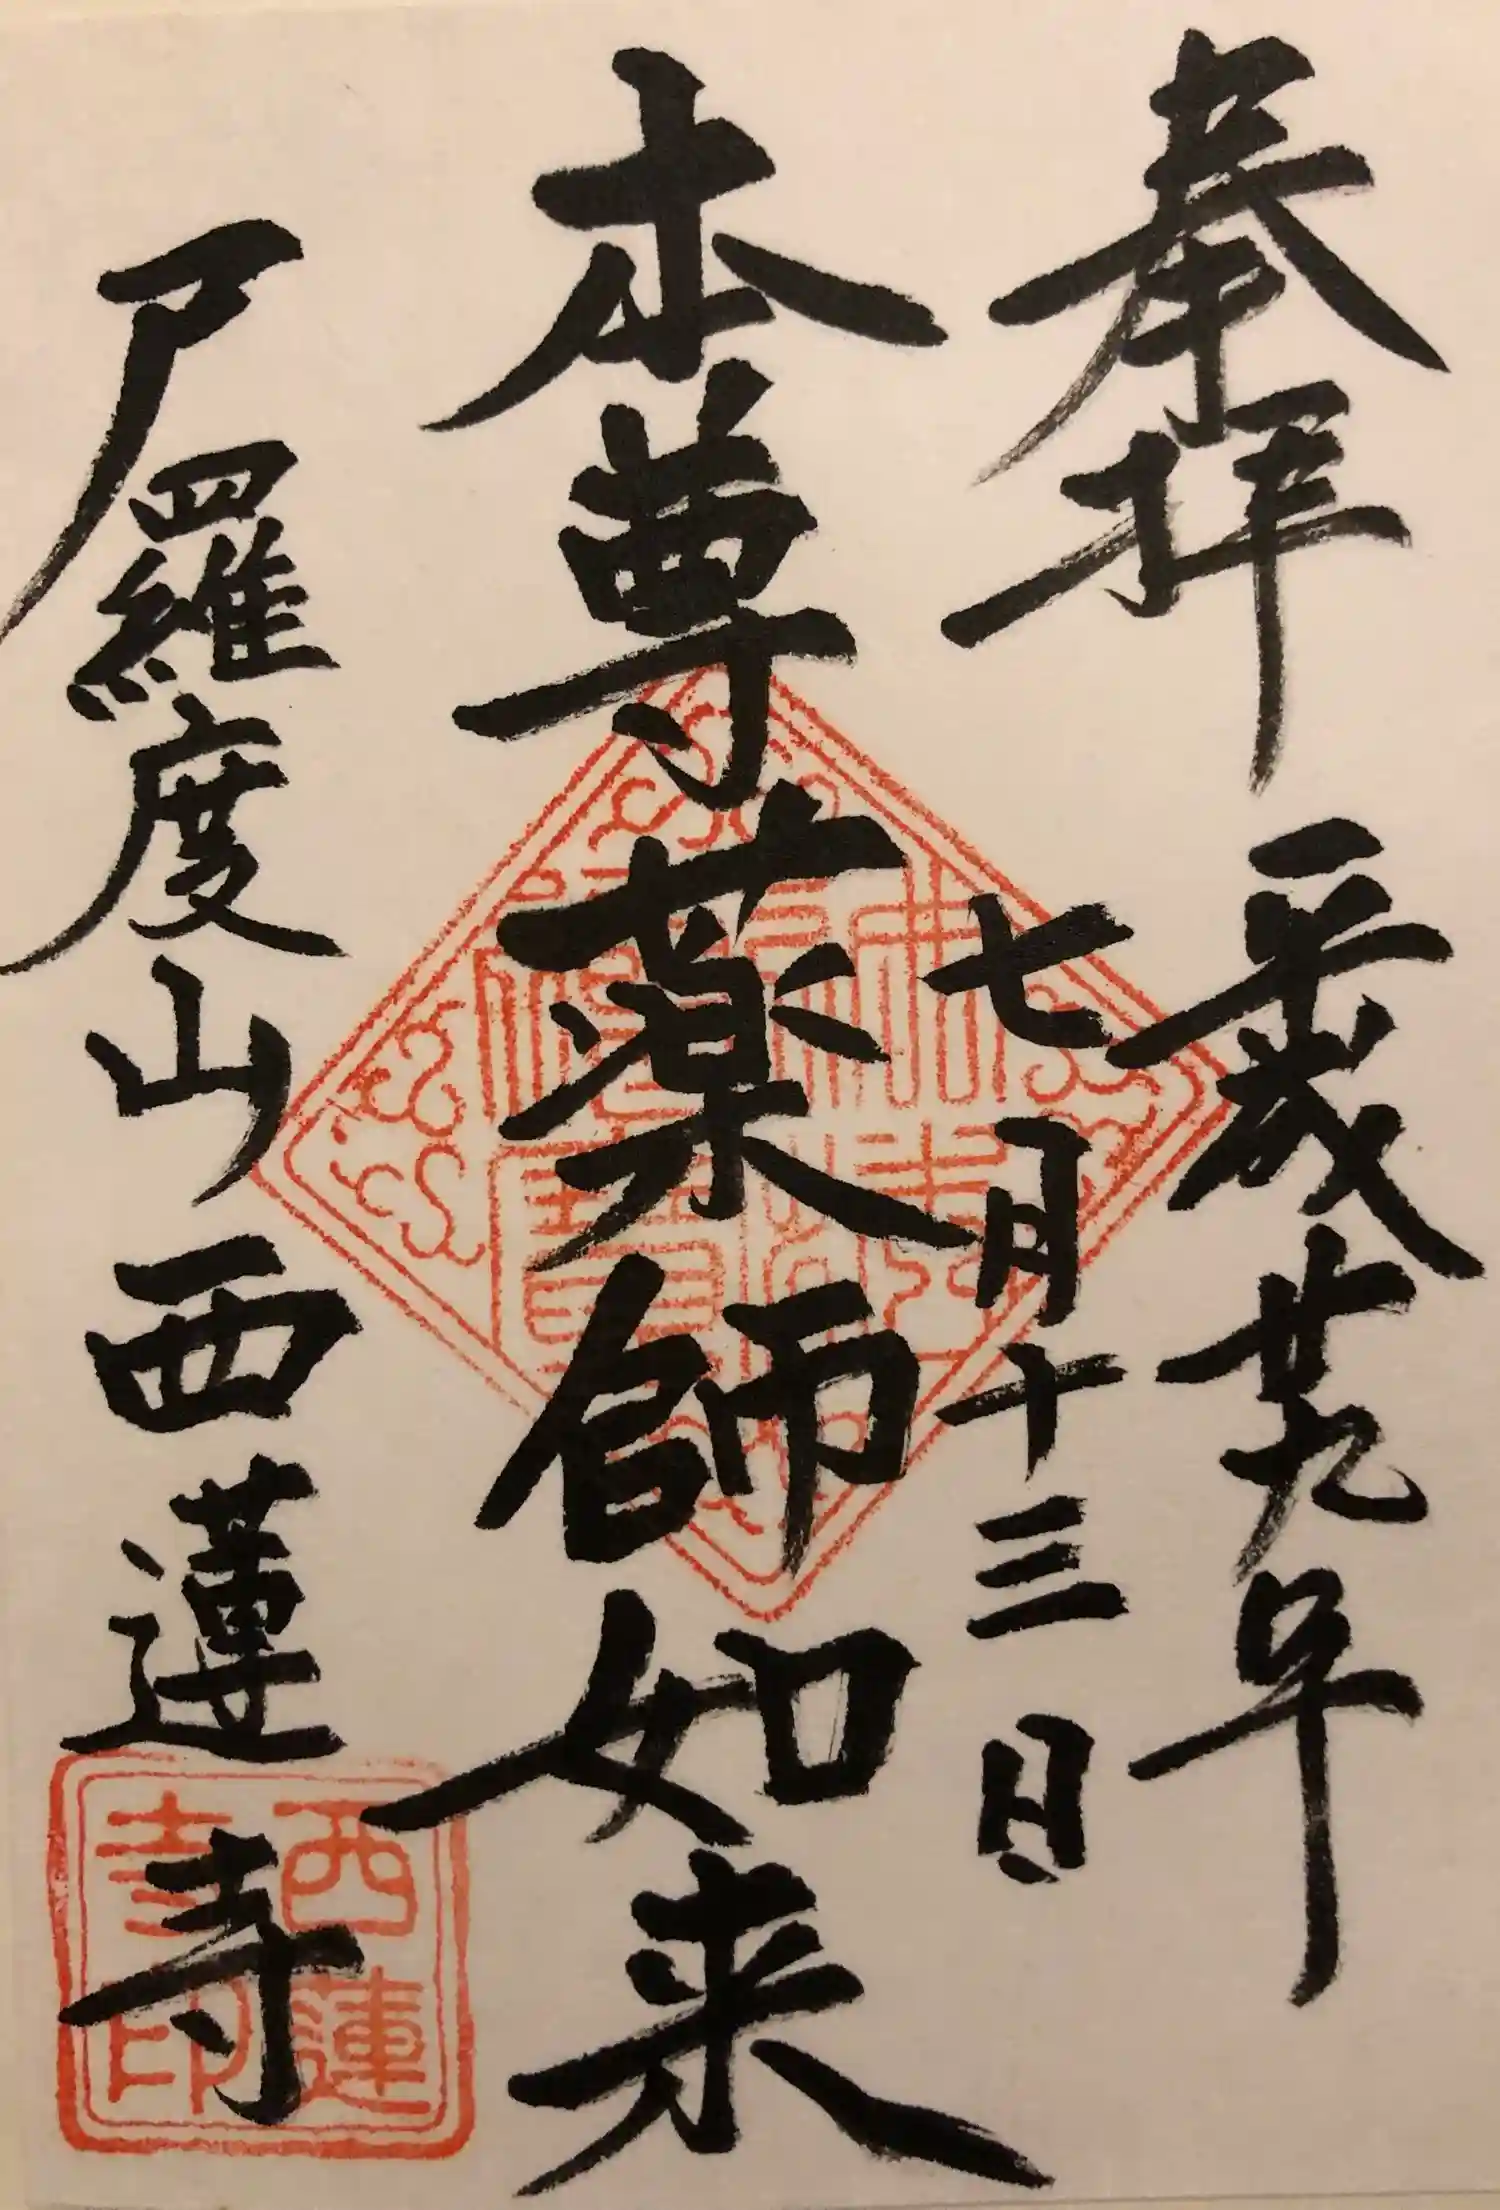 奉拝 平成廿九年
七月十三日
本尊薬師如来
尸羅度山西蓮寺
西蓮寺印